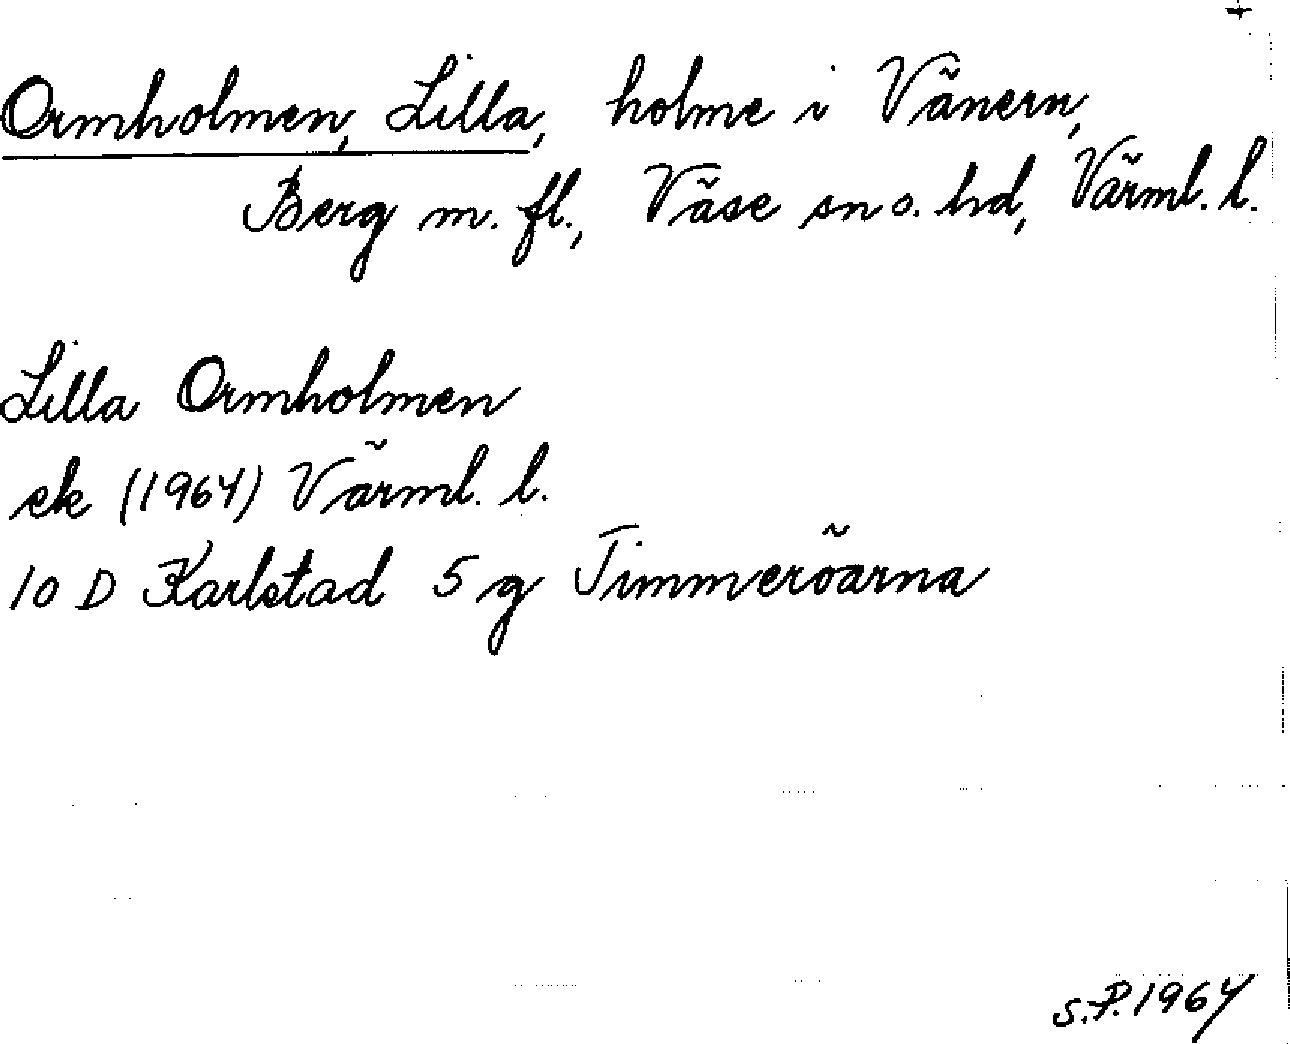 Ormholmen, Lilla, holme i Vänern,
Berg m. fl., Väse sn o. hd, Värml. l.
Lilla Ormholmen
ek (1964) Värml. l.
10 D Karlstad 5 g Timmeröarna
S.P. 1964